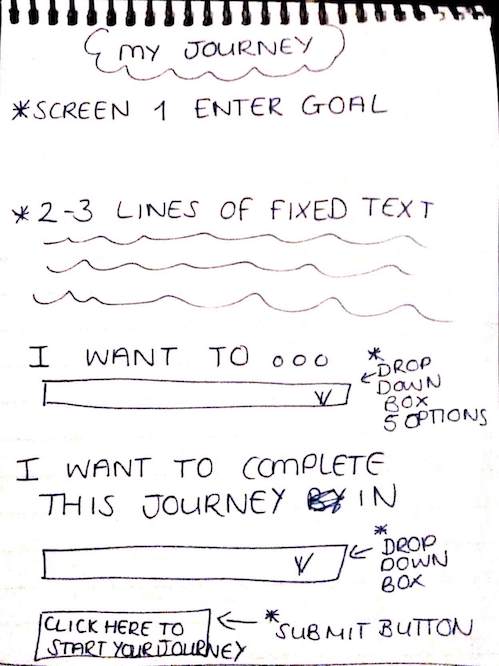 MY JOURNEY
*SCREEN 1 ENTER GOAL
*2-3 LINES OF FIXED TEXT
I WANT TO ooo
*DROP
DOWN
BOX
5 OPTIONS
I WANT TO COMPLETE
THIS JOURNEY IN
*DROP
DOWN
BOX
CLICK HERE TO
START YOUR JOURNEY
*SUBMIT BUTTON